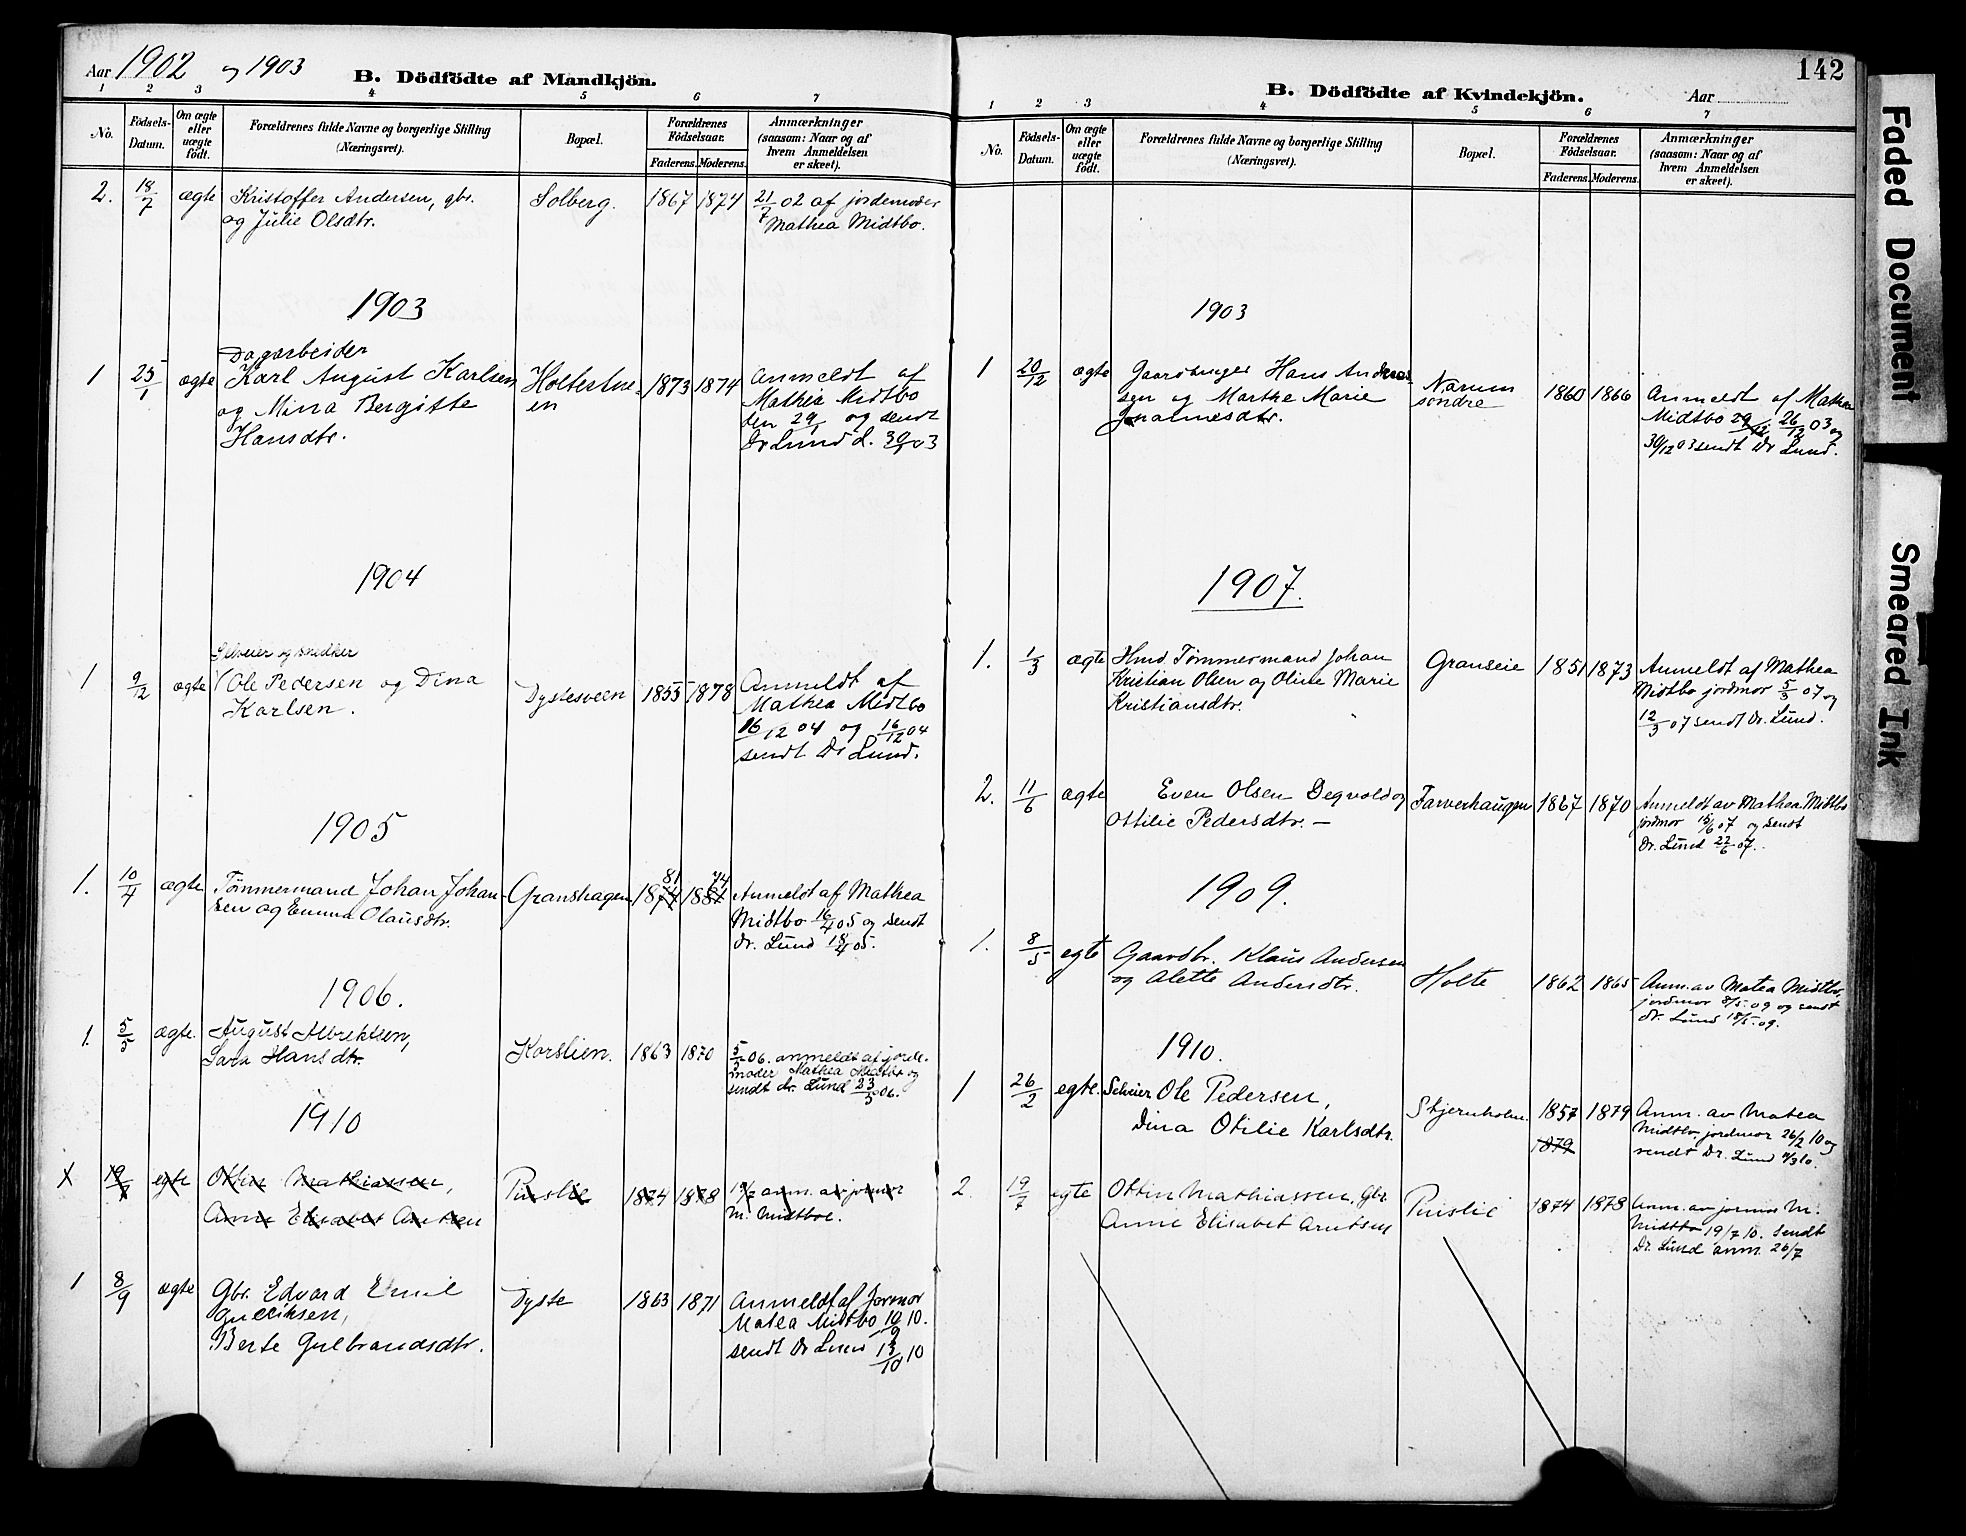 Aar 1902 og 1903
B. Dödfödte af Mandkjön.
1 2 3 4 5 6 7
No.
Födsels-Datum.
Om ægte eller uægte födt.
Forældrenes fulde Navne og borgerlige Stilling (Næringsvei).
Bopæl.
Forældrenes Födselsaar.
Faderens. Moderens.
Anmærkninger (saasom: Naar og af hvem Anmeldelsen er skeet).
2. 18/7 ægte Kristoffer Andersen, gbr. Solberg. 1867 1874 21/7 02 af jordemoder
og Julie Olsdtr. Mathea Midtbo.
1903
Dagarbeider
1 25/1 ægte Karl August Karlsen Holtestue- 1873 1874 Anmeldt af
og Mina Bergitte en Mathea Midtbo
Hansdtr. den 29/1 og sendt
Dr Lund d. 03
1904
Selveier og snedker
1 9/2 ægte Ole Pedersen og Dina Dystesveen 1855 1878 Anmeldt af
Karlsen. Mathea Midtbo
16/12 04 og 16/12 04
sendt Dr Lund.
1905
81 74
1. 10/4 ægte Tømmermand Johan Johan- Granshagen 1874 1881 Anmeldt af Mathea
sen og Emma Olausdtr. Midtbo 16/4 05 og sendt
dr. Lund 18/4 05.
1906.
1. 5/5 ægte August Albrektsen, Korslien. 1863 1870 5/5 06. anmeldt af jorde-
Sara Hansdtr. moder Mathea Midtbo og
sendt dr. Lund 23/5 06.
1910
1 19/7 egte Ottin Mathiassen, Puislie 1874 1878 19/7 anm. av jormor
Anne Elisabet Arntsen M. Midtboe.
1 8/9 ægte Gbr. Edvard Emil Dyste 1863 1871 Anmeldt af Jormor
Matea Midtbo 10/9 10.
Berte Gulbrandsdtr. sendt Dr Lund 13/10 10
142
B. Dödfödte af Kvindekjön. Aar
1 2 3 4 5 6 7
No.
Födsels-Datum.
Om ægte eller uægte födt.
Forældrenes fulde Navne og borgerlige Stilling (Næringsvei).
Bopæl.
Forældrenes Födselsaar.
Faderens. Moderens.
Anmærkninger (saasom: Naar og af hvem Anmeldelsen er skeet).
1903
1 20/12 ægte Gaardbruger Hans Andreas- Narum 1860 1866 Anmeldt af Mathea
sen og Marthe Marie søndre Midtbo 29/12 26/12 03 og
30/12 03 sendt Dr Lund.
1907.
1. 1/3 ægte Hmd. Tømmermand Johan Granseie 1851 1873 Anmeldt af Mathea
Kristian Olsen og Oline Marie Midtbo jordmor 5/3 07 og
Kristiansdtr. 12/3 07 sendt Dr. Lund.
2. 11/6 ægte Even Olsen Degvold og Farverhaugen 1867 1870 Anmeldt av Mathea Midtbo
Ottilie Pedersdtr. — jordmor 15/6 07 og sendt
Dr. Lund 22/6 07.
1909.
1. 8/5 egte Gaardbr. Klaus Andersen Holte 1862 1865 Anm. av Matea Midtbo,
og Alette Andersdtr. jordmor 8/5. 09 og sendt
dr. Lund 18/5. 09.
1910.
1 26/2 egte. Selveier Ole Pedersen, Stjernholm 1857 1879 Anm. av Matea
Dina Otilie Karlsdtr. 1879 Midtbo, jordmor 26/2 10 og
sendt Dr. Lund
2. 19/7 egte Ottin Mathiassen, Gbr Puislie 1874 1878 Anm. av jormor M.
Anne Elisabet Arntsen Midtbo 19/7 10. Sendt
Dr. Lund anm. 26/7
Faded Document
Smeared Ink